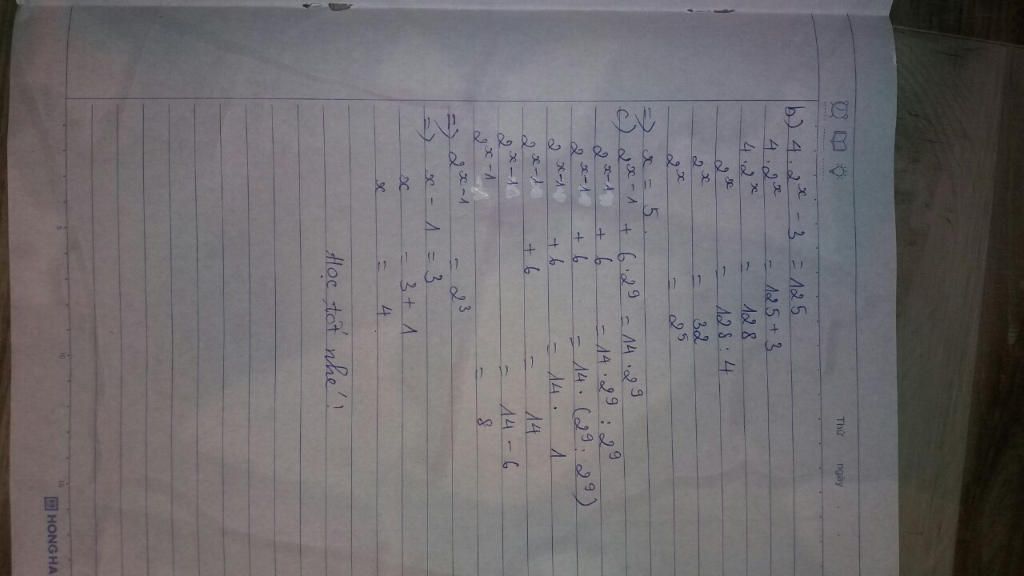 Thứ ngày
b) 4.2^x - 3 = 125
4.2^x = 125 + 3
4.2^x = 128
2^x = 128 : 4
2^x = 32
2^x = 2^5
=) x = 5.
c) 2^x-1 + 6.2^9 = 14.2^9
2^x-1 + 6 = 14.2^9 : 2^9
2^x-1 + 6 = 14.(2^9 : 2^9)
2^x-1 + 6 = 14.1
2^x-1 + 6 = 14
2^x-1 = 14 - 6
2^x-1 = 8
=) 2^x-1 = 2^3
=) x - 1 = 3
x = 3 + 1
x = 4
Học tốt nhé!
HONG HA